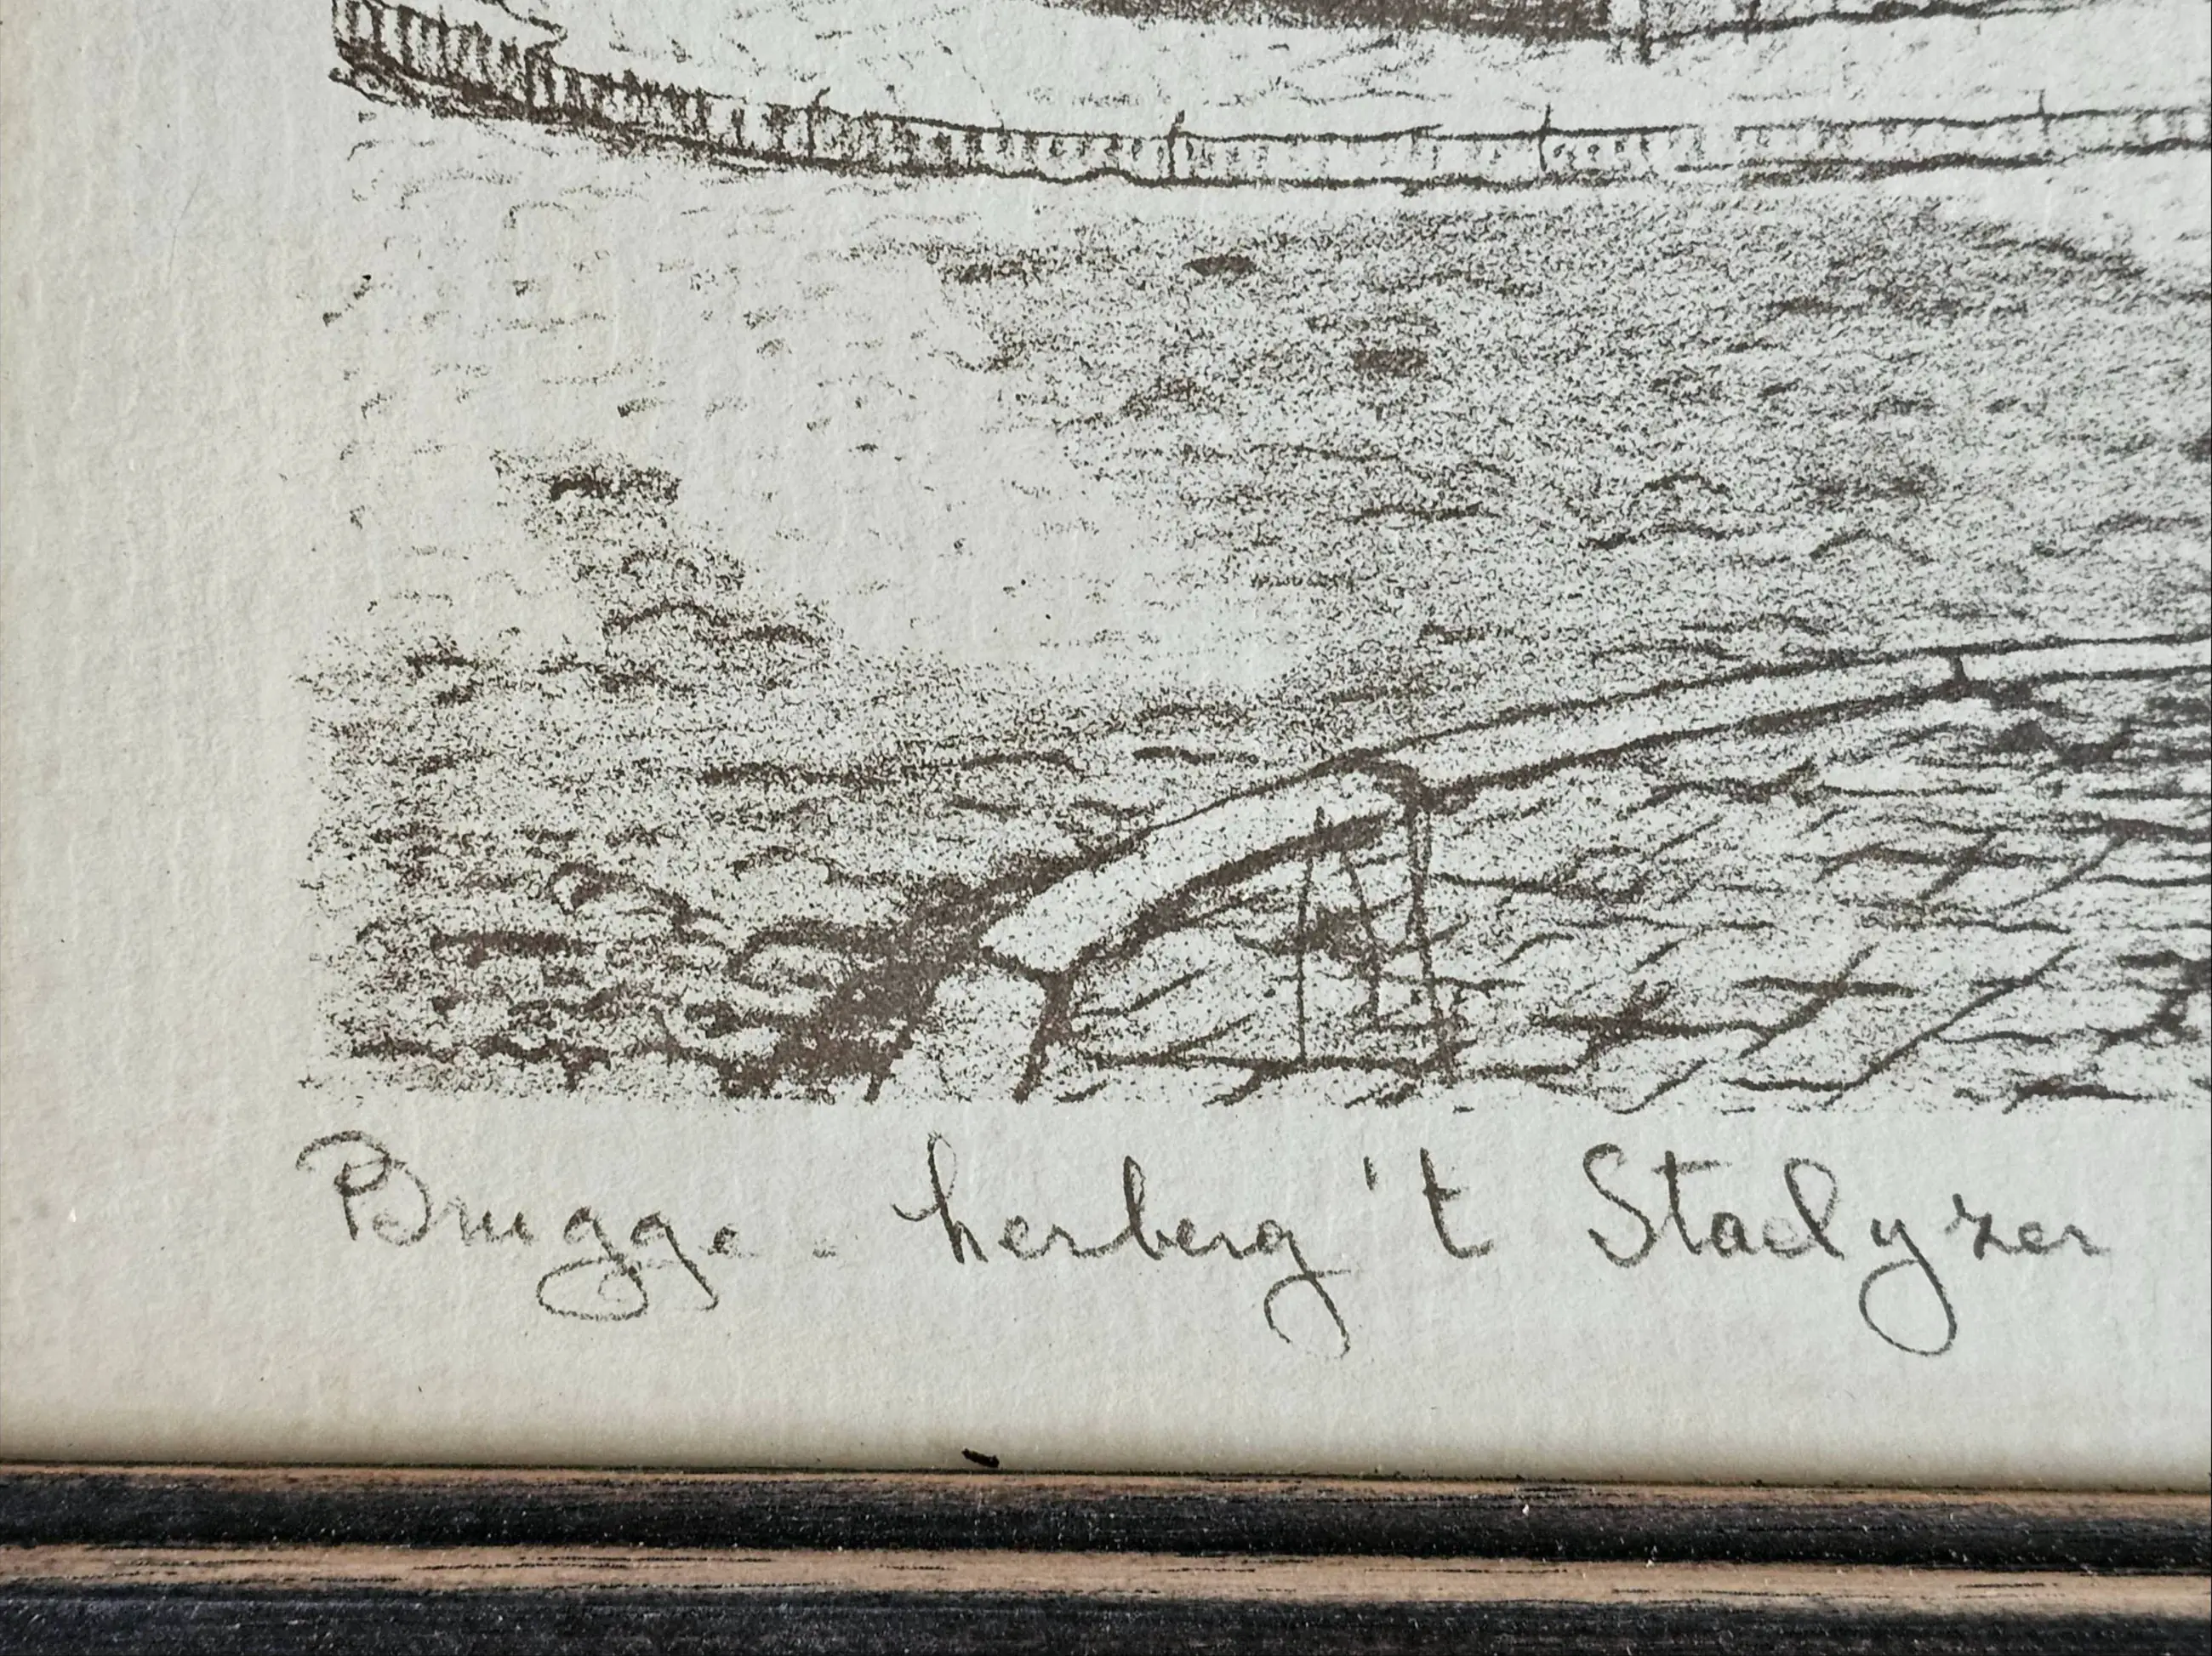 Brugge - herberg 't Staelyzer